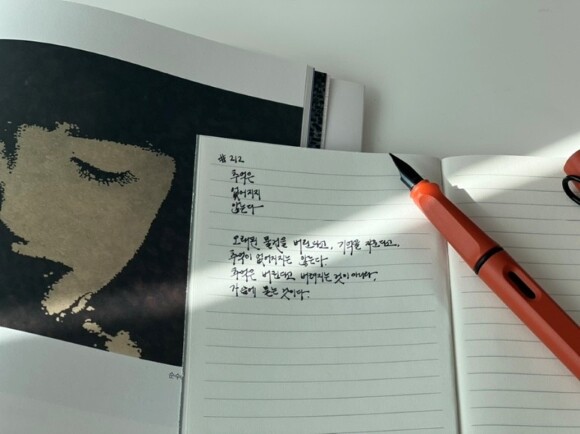 # 212
추억은
없어지지
않는다
오래된 물건을 버린다고, 기억을 지운다고,
추억이 없어지지는 않는다
추억은 버린다고 버려지는 것이 아니다.
가슴에 묻는 것이다.